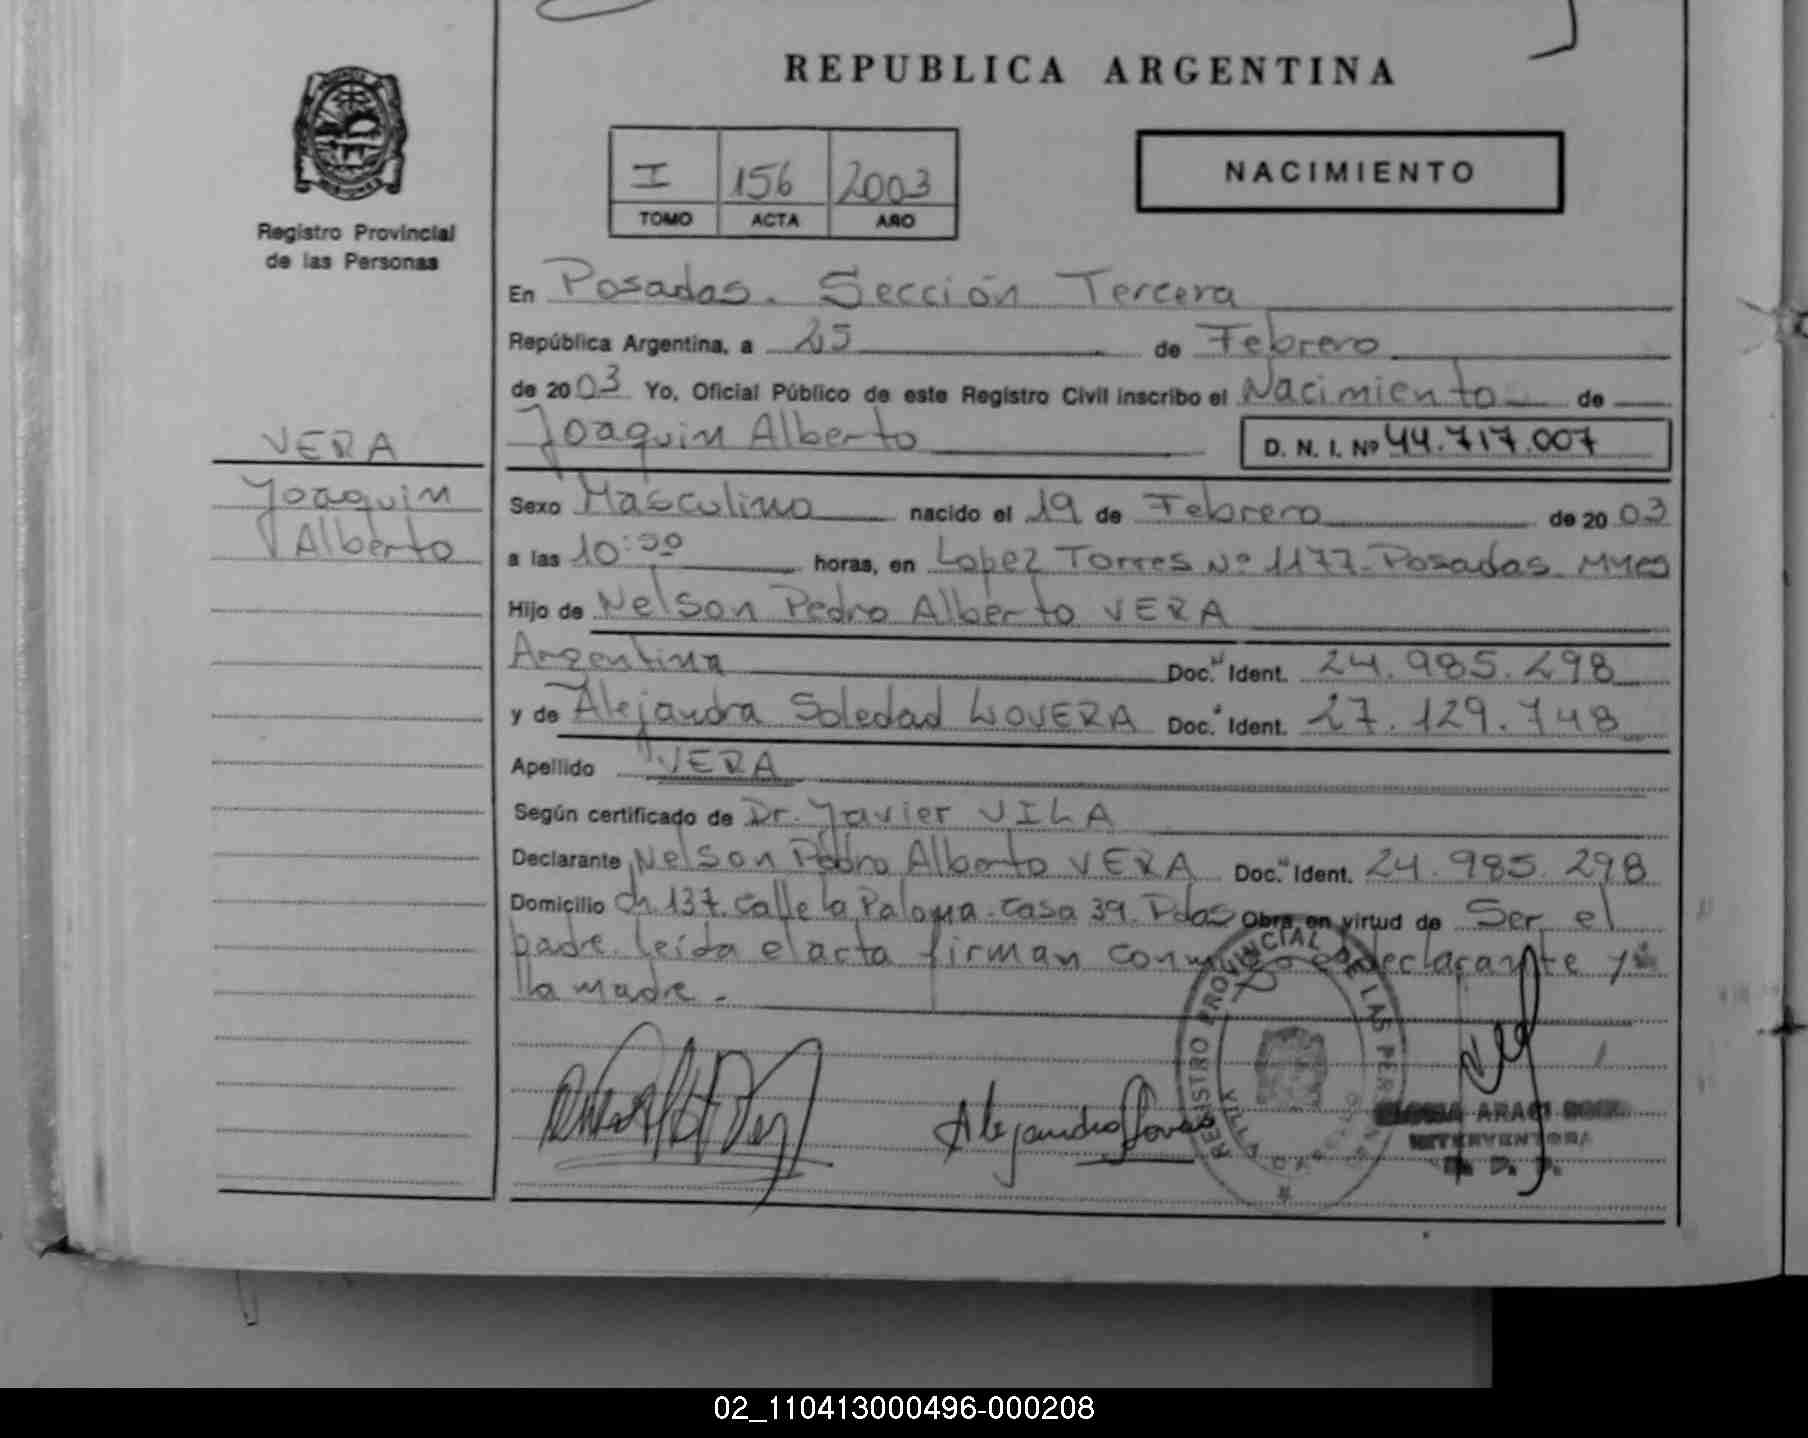 REPUBLICA ARGENTINA
Registro Provincial
de las Personas
I 156 2003
TOMO ACTA AÑO
NACIMIENTO
En Posadas. Sección Tercera
República Argentina, a 25 de Febrero
de 2003 Yo, Oficial Público de este Registro Civil inscribo el Nacimiento de
Joaquin Alberto D. N. I. Nº 44.717.007
VERA
Joaquin
Alberto
Sexo Masculino nacido el 19 de Febrero de 2003
a las 10:30 horas, en Lopez Torres Nº 1177. Posadas. Mnes
Hijo de Nelson Pedro Alberto VERA
Argentina Doc. Ident. 24.985.298
y de Alejandra Soledad LLOVERA Doc. Ident. 27.129.748
Apellido VERA
Según certificado de Dr. Javier VILA
Declarante Nelson Pedro Alberto VERA Doc. Ident. 24.985.298
Domicilio Ch. 137. Calle la Paloma. Casa 39. Pdas Obra en virtud de Ser el
padre. leída el acta firman conmigo el declarante y
la madre.
REGISTRO PROVINCIAL DE LAS PER
ARACI
INTERVENTORA
02_110413000496-000208